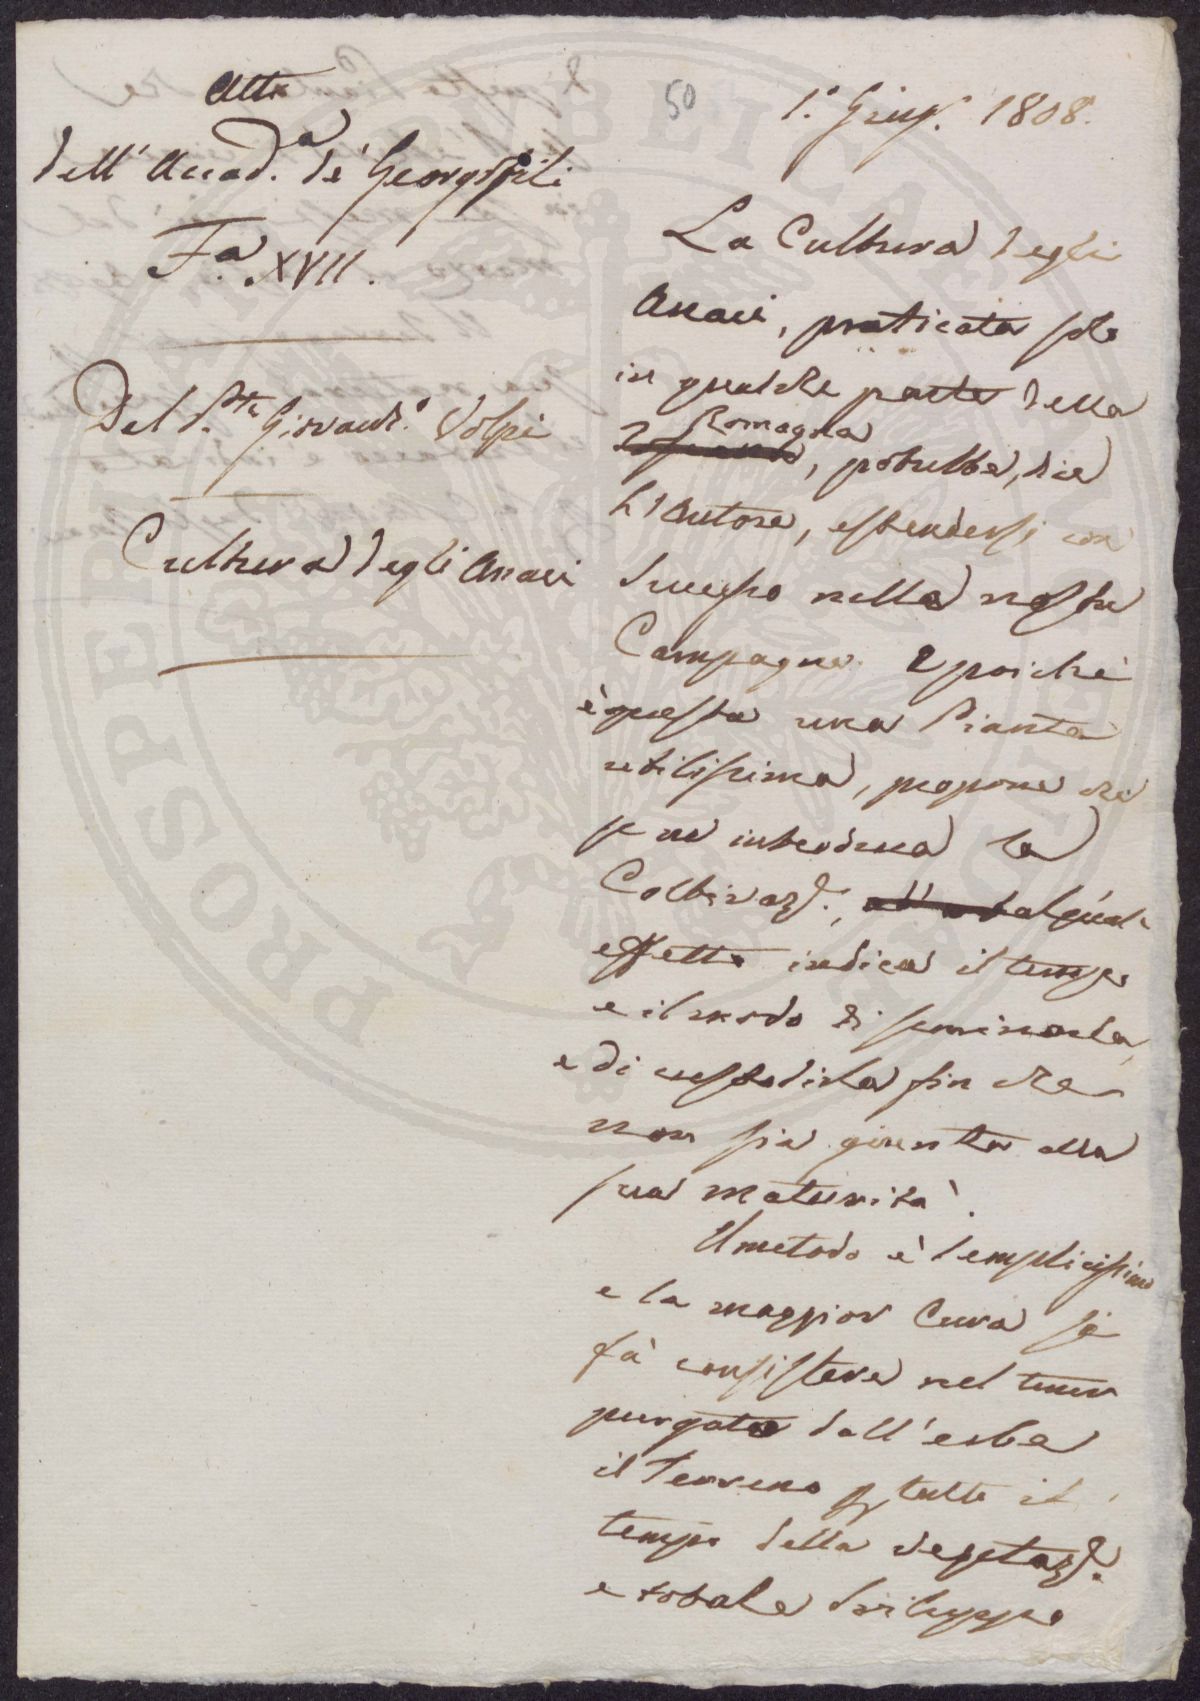 Atti
dell'Accad.a de' Georgofili
F.a XVII.
Del S.te Giovacch.o Volpi
Cultura degli Anaci
50
1.° Giug.° 1808.
La Cultura degli
Anaci, praticata solo
in qualche parte della
Romagna
, potrebbe, dice
L'Autore, estendersi con
Successo nelle nostre
Campagne. E poichè
è questa una Pianta
utilissima, propone che
se ne introduca la
Coltivaz.e, al qual
effetto indica il tempo
e il modo di seminarla,
e di custodirla fin che
non sia giunta alla
sua maturità.
Il metodo è semplicissimo
e la maggior Cura si
fà consistere nel tener
purgato dall'erba
il Terreno p tutto il
tempo della vegetaz.e
e totale Sviluppo
PROSPERITATI REI PUBLICAE AUGENDAE